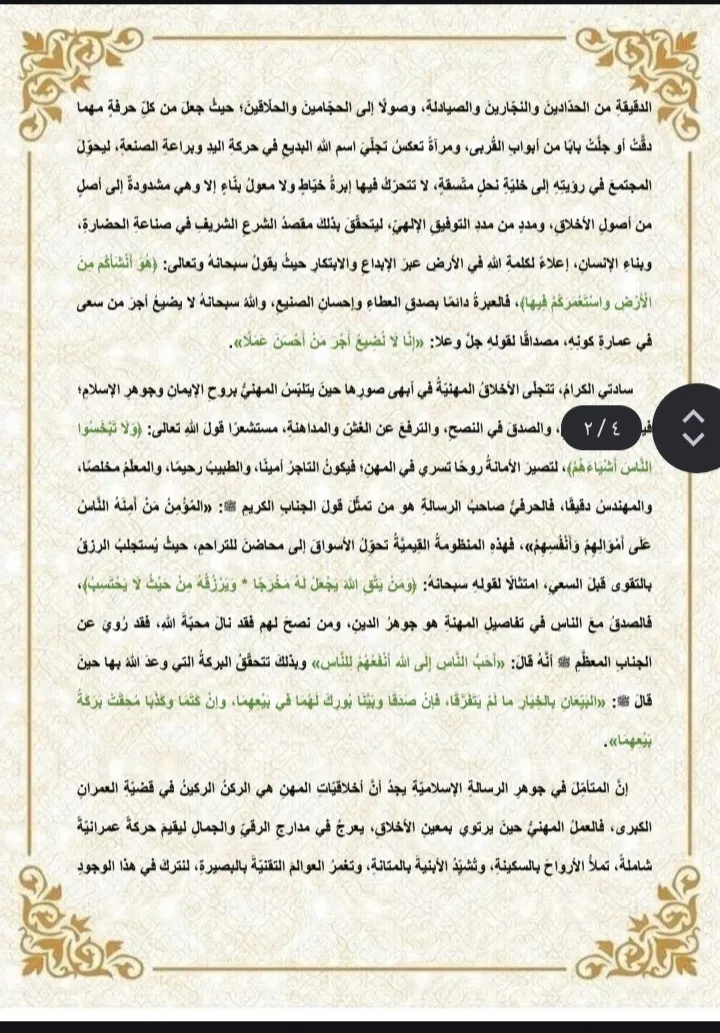 الدقيقةِ من الحدّادينَ والنجّارينَ والصيادلةِ، وصولًا إلى الحجّامينَ والحلّاقينَ؛ حيثُ جعلَ من كلِّ حرفةٍ مهما
دقَّتْ أو جلَّتْ بابًا من أبوابِ القُربى، ومرآةً تعكسُ تجلّيَ اسمِ اللهِ البديعِ في حركةِ اليدِ وبراعةِ الصنعةِ، ليحوّلَ
المجتمعَ في رؤيتِهِ إلى خليّةِ نحلٍ متّسقةٍ، لا تتحرّكُ فيها إبرةُ خيّاطٍ ولا معولُ بنّاءٍ إلا وهي مشدودةٌ إلى أصلٍ
من أصولِ الأخلاقِ، ومددٍ من مددِ التوفيقِ الإلهيّ، ليتحقّقَ بذلكَ مقصدُ الشرعِ الشريفِ في صناعةِ الحضارةِ،
وبناءِ الإنسانِ، إعلاءً لكلمةِ اللهِ في الأرضِ عبرَ الإبداعِ والابتكارِ حيثُ يقولُ سبحانهُ وتعالى: ﴿هُوَ أَنْشَأَكُم مِنَ
الْأَرْضِ وَاسْتَعْمَرَكُمْ فِيهَا﴾، فالعبرةُ دائمًا بصدقِ العطاءِ وإحسانِ الصنيعِ، واللهُ سبحانهُ لا يضيعُ أجرَ من سعى
في عمارةِ كونِهِ، مصداقًا لقولهِ جلَّ وعلا: «إِنَّا لَا نُضِيعُ أَجْرَ مَنْ أَحْسَنَ عَمَلًا».
سادتي الكرامُ، تتجلّى الأخلاقُ المهنيّةُ في أبهى صورِها حينَ يتلبّسُ المهنيُّ بروحِ الإيمانِ وجوهرِ الإسلامِ؛
، والصدقِ في النصحِ، والترفعِ عن الغشِّ والمداهنةِ، مستشعرًا قولَ اللهِ تعالى: ﴿وَلَا تَبْخَسُوا
٢ / ٤
النَّاسَ أَشْيَاءَهُمْ﴾، لتصيرَ الأمانةُ روحًا تسري في المهنِ؛ فيكونُ التاجرُ أمينًا، والطبيبُ رحيمًا، والمعلّمُ مخلصًا،
والمهندسُ دقيقًا، فالحرفيُّ صاحبُ الرسالةِ هو من تمثّلَ قولَ الجنابِ الكريمِ ﷺ: «المُؤْمِنُ مَنْ أَمِنَهُ النَّاسُ
عَلَى أَمْوَالِهِمْ وَأَنْفُسِهِمْ»، فهذهِ المنظومةُ القيميّةُ تحوّلُ الأسواقَ إلى محاضنَ للتراحمِ، حيثُ يُستجلبُ الرزقُ
بالتقوى قبلَ السعيِ، امتثالًا لقولهِ سبحانهُ: ﴿وَمَنْ يَتَّقِ اللهَ يَجْعَلْ لَهُ مَخْرَجًا * وَيَرْزُقْهُ مِنْ حَيْثُ لَا يَحْتَسِبُ﴾،
فالصدقُ معَ الناسِ في تفاصيلِ المهنةِ هو جوهرُ الدينِ، ومن نصحَ لهم فقد نالَ محبّةَ اللهِ، فقد رُويَ عن
الجنابِ المعظَّمِ ﷺ أنَّهُ قالَ: «أَحَبُّ النَّاسِ إِلَى اللهِ أَنْفَعُهُمْ لِلنَّاسِ» وبذلكَ تتحقّقُ البركةُ التي وعدَ اللهُ بها حينَ
قالَ ﷺ: «البَيِّعَانِ بالخِيَارِ ما لَمْ يَتَفَرَّقَا، فَإِنْ صَدَقَا وبَيَّنَا بُورِكَ لَهُمَا في بَيْعِهِمَا، وإنْ كَتَمَا وكَذَبَا مُحِقَتْ بَرَكَةُ
بَيْعِهِمَا».
إنَّ المتأمّلَ في جوهرِ الرسالةِ الإسلاميّةِ يجدُ أنَّ أخلاقيّاتِ المهنِ هي الركنُ الركينُ في قضيّةِ العمرانِ
الكبرى، فالعملُ المهنيُّ حينَ يرتوي بمعينِ الأخلاقِ، يعرجُ في مدارجِ الرقيّ والجمالِ ليقيمَ حركةً عمرانيّةً
شاملةً، تملأُ الأرواحَ بالسكينةِ، وتُشيّدُ الأبنيةَ بالمتانةِ، وتغمرُ العوالمَ التقنيّةَ بالبصيرةِ، لنتركَ في هذا الوجودِ